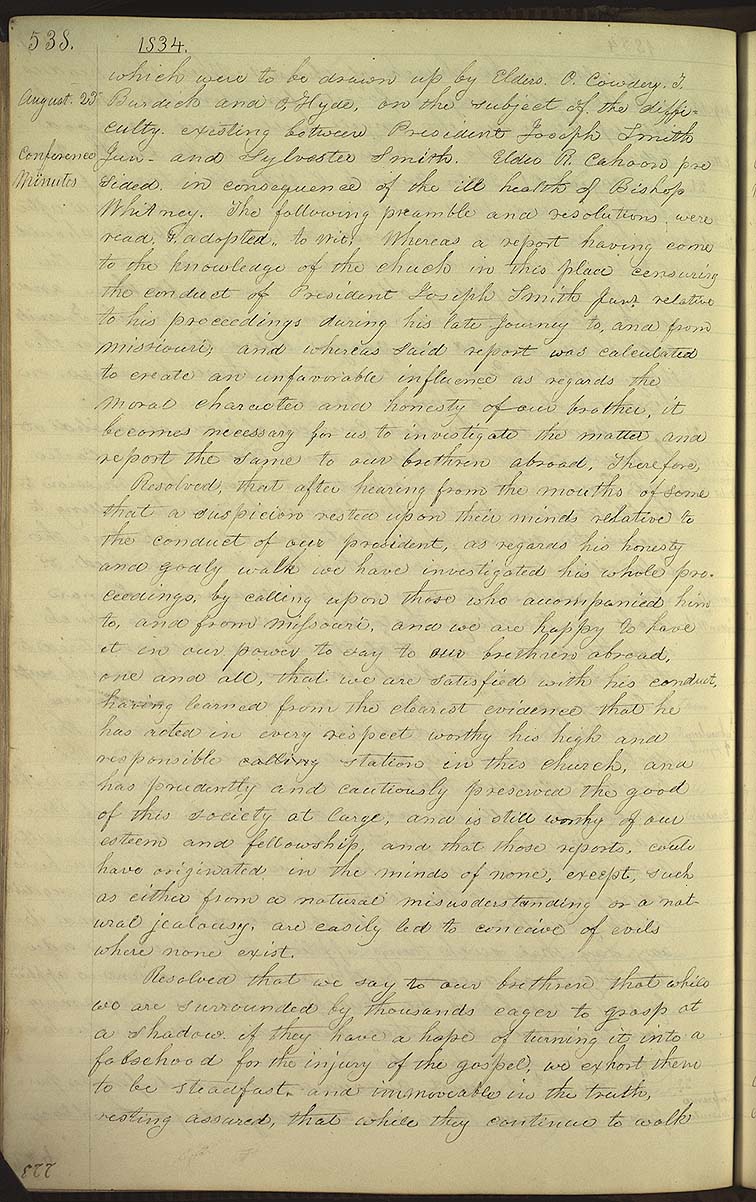 538.
1834.
August. 23
Conference
Minutes
which were to be drawn up by Elders. O. Cowdery. T.
Burdick and O. Hyde, on the subject of the diffi=
culty. existing between President Joseph Smith
Jun- and Sylvester Smith. Elder R. Cahoon pre
sided. in consequence of the ill health of Bishop
Whitney. The following preamble and resolutions, were
read, & adopted,, to wit: Whereas a report having come
to the knowledge of the chuch in this place censuring
the conduct of President Joseph Smith Junr. relative
to his proceedings during his late Journey to, and from
missiouri, and whereas said report was calculated
to create an unfavorable influence as regards the
moral character and honesty of our brother, it
becomes necessary for us to investigate the matter and
report the same to our brethren abroad, Therefore,
Resolved, that after hearing from the mouths of some
that a suspicion rested upon their minds relative to
the conduct of our president, as regards his honesty
and godly walk we have investigated his whole pro-
ceedings, by calling upon those who acompanied him
to, and from Missouri, and we are happy to have
it in our power to say to our brethren abroad,
one and all, that we are satisfied with his conduct,
having learned from the clearest evidence that he
has acted in every respect worthy his high and
responsible calling station in this church, and
has prudently and cautiously preserved the good
of this society at large, and is still worthy of our
esteem and fellowship, and that those reports, could
have originated in the minds of none, except, such
as either from a natural misusderstanding or a nat-
ural jealousy, are easily led to conceive of evils
where none exist.
Resolved that we say to our brethren that while
we are surrounded by thousands eager to grasp at
a shadow. if they have a hope of turning it into a
falsehood for the injury of the gospel, we exhort them
to be steadfast, and immoveable in the truth,
resting assured, that while they continue to walk
877